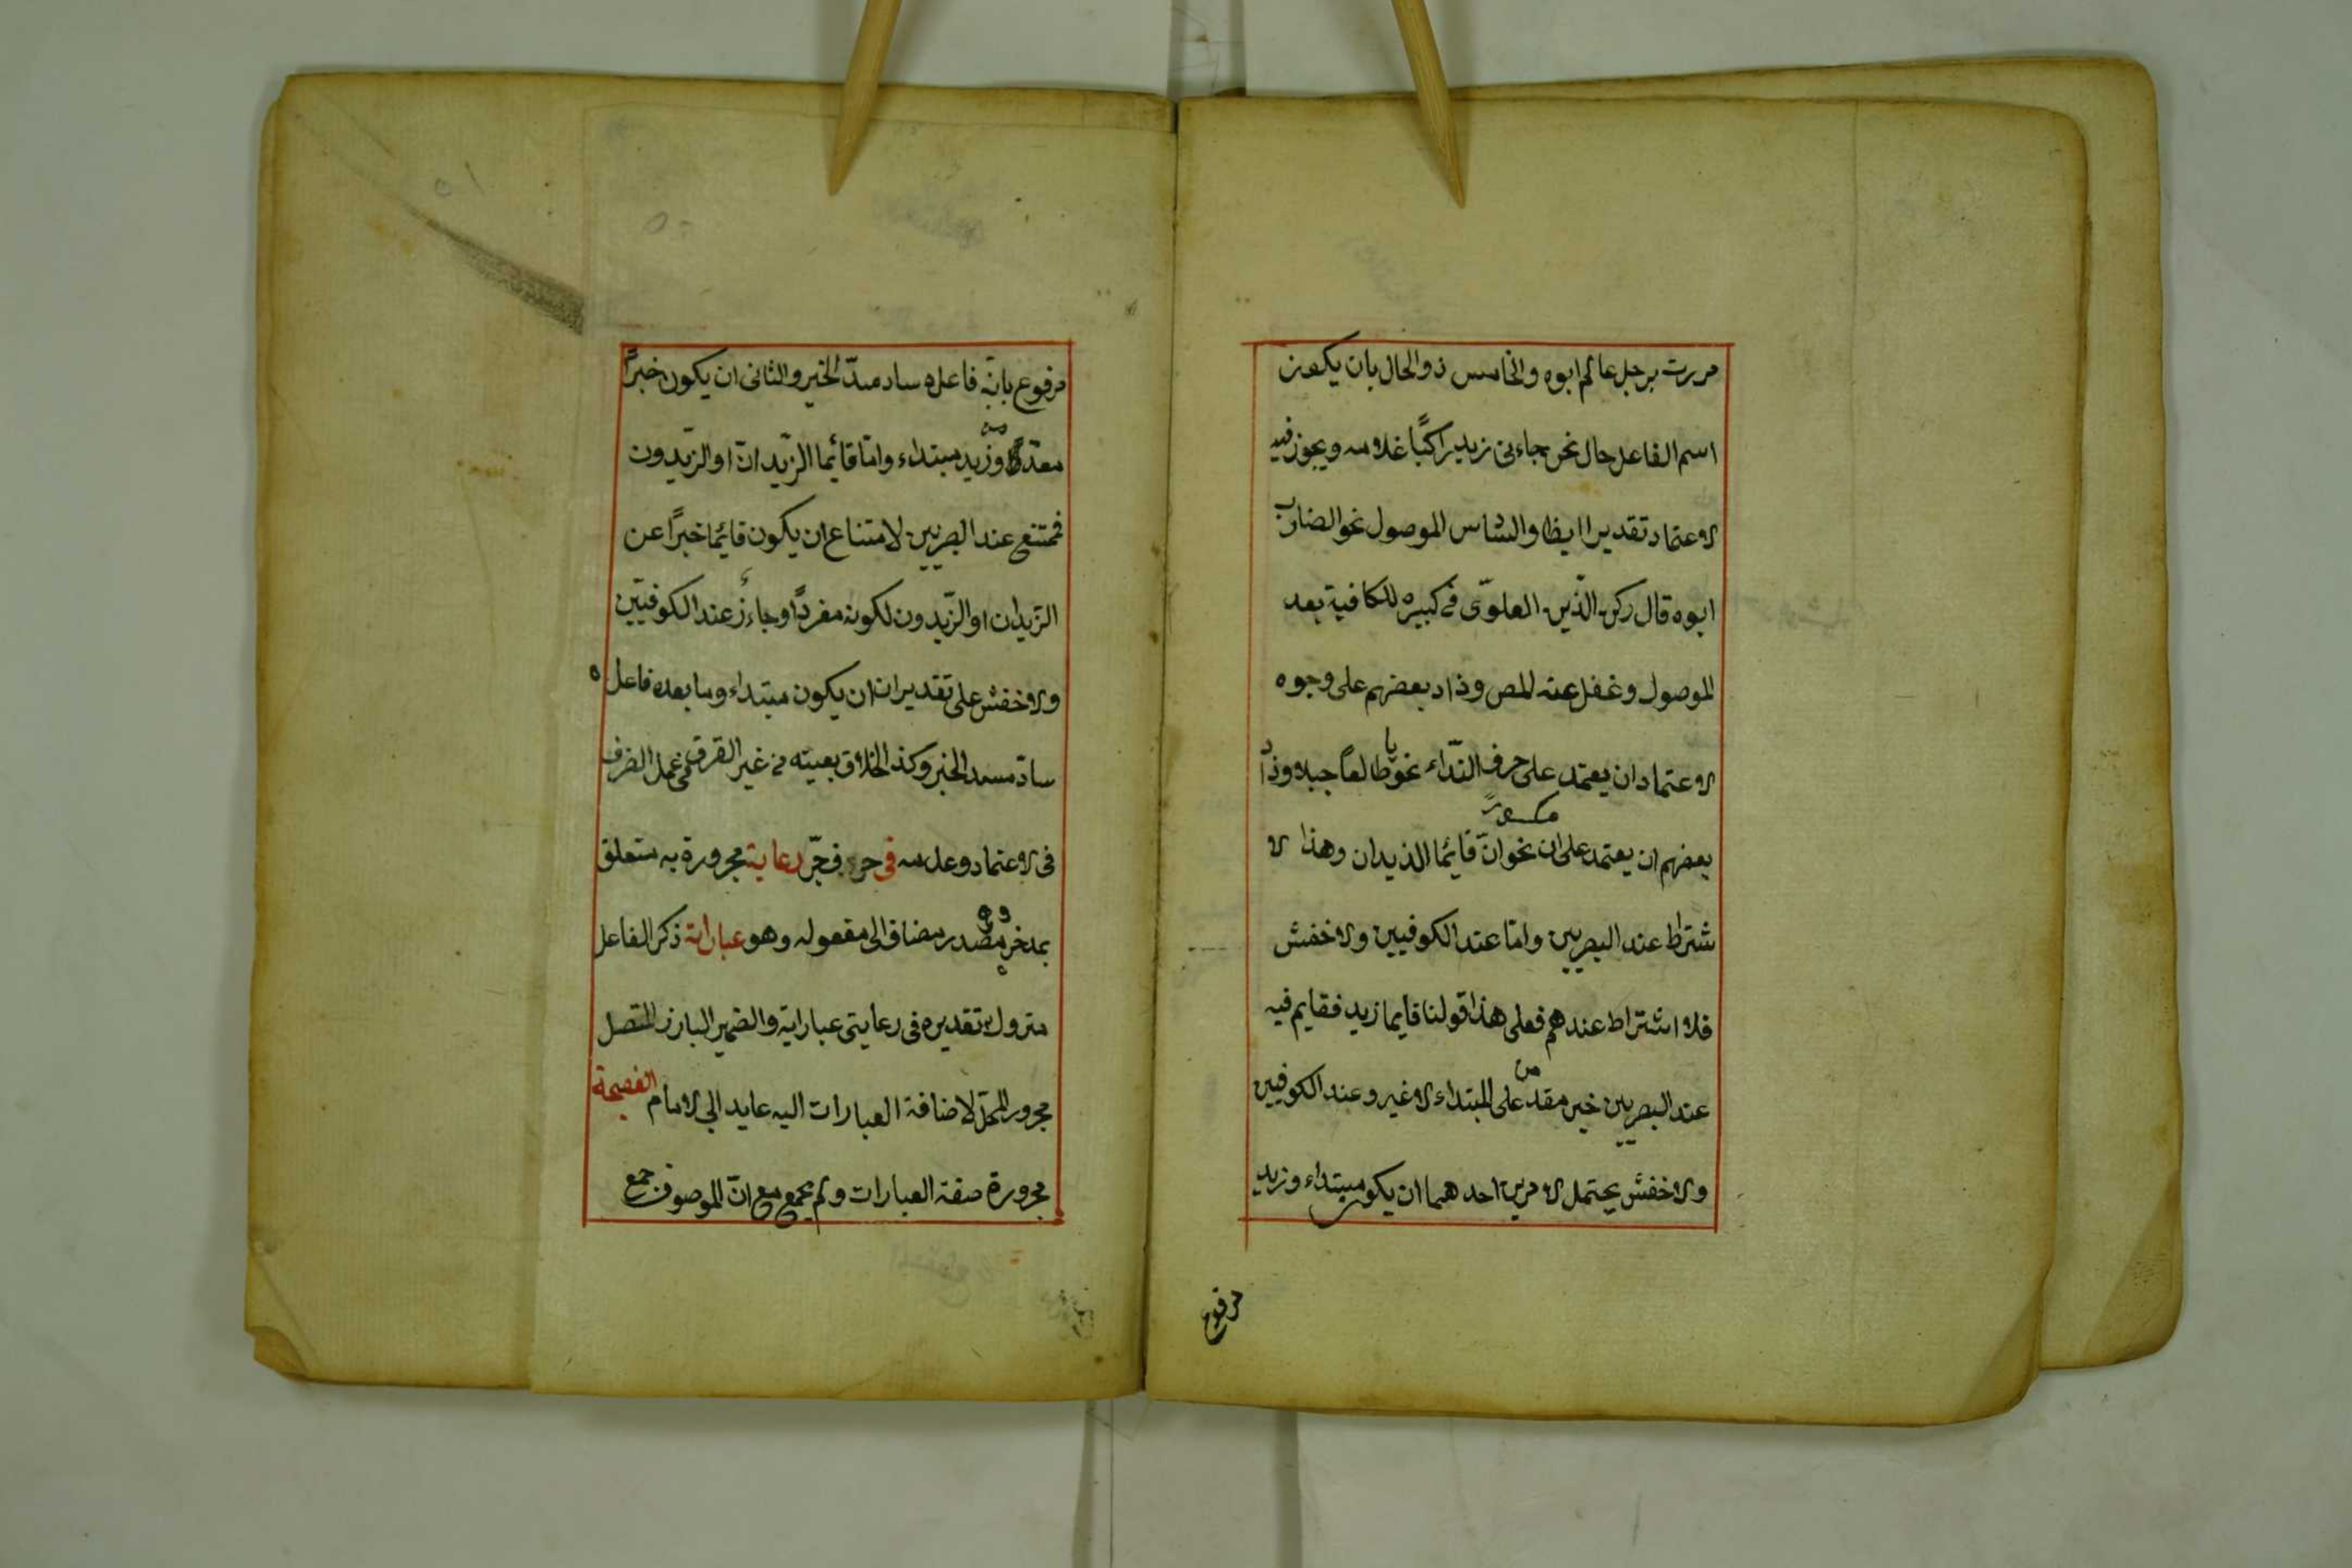 مررت برجل عالم ابوه والخامس ذوالحال بان يكون
اسم الفاعل حال نحو جاءنى زيد راكبًا غلامه ويجوز فيه
الاعتماد تقديرا ايظا والسادس الموصول نحو الضارب
ابوه قال ركن الدّين العلوّى فى كبيره للكافية بعد
الموصول وغفل عنه المص وذاد بعضهم على وجوه
الاعتماد ان يعتمد على حرف النّداء نحو يا طالعاً جبلا وذاد
مكسورة
بعضهم ان يعتمد على ان نحو انّ قائما الذيدان وهذا الا
شتراط عند البصريين وامّا عند الكوفيين والاخفش
فلا اشتراط عندهم فعلى هذا قولنا قايما زيد فقايم فيه
عند البصريين خبر مقدم على المبتداء لا غير وعند الكوفيين
والاخفش يحتمل الامرين احدهما ان يكون مبتداء وزيد
مرفوع
مرفوع بانّه فاعله ساد مسدّ الخبر والثانى ان يكون خبرًا
مقدّمًا وزيد مبتداء وامّا قائما الزّيدان او الزّيدون
فممتنع عند البصريين لامتناع ان يكون قائما خبرًا عن
الزيدان او الزّيدون لكونه مفردًا وجاءز عند الكوفيّين
والاخفش على تقدير ان يكون مبتداء وما بعده فاعله
سادّ مسد الخبر وكذ الخلاق بعينه من غير الفرق فى عمل الضرف
فى الاعتماد وعدمه فى حرف جرّ رعاية مجرورة به متعلق
بمدخر مصدر مضاف الى مفعوله وهو عباراته ذكر الفاعل
متروك تقديره فى رعايتى عباراته والضمير البارز المتصل
مجرور المحلّ لاضافة العبارات اليه عايد الى الامام الفصيحة
مجرورة صفة العبارات ولم يجمع مع انّ الموصوف جمع